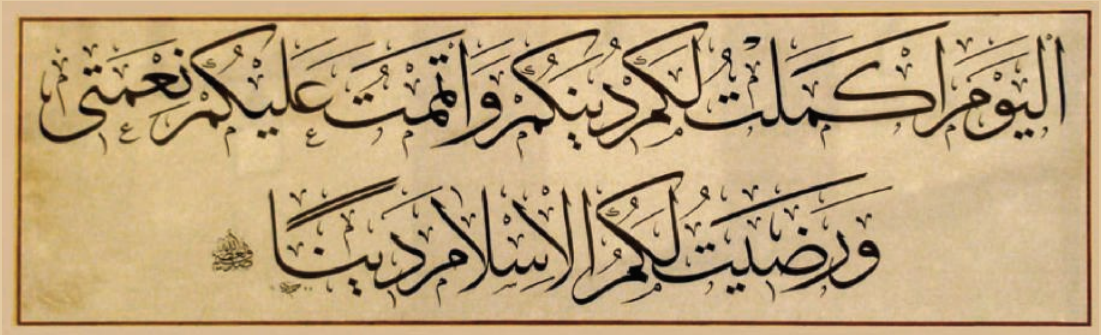 اَلْيَوْمَ اَكْمَلْتُ لَكُمْ دِينَكُمْ وَاَتْمَمْتُ عَلَيْكُمْ نِعْمَتِى
وَرَضِيتُ لَكُمُ الْاِسْلَامَ دِينًا